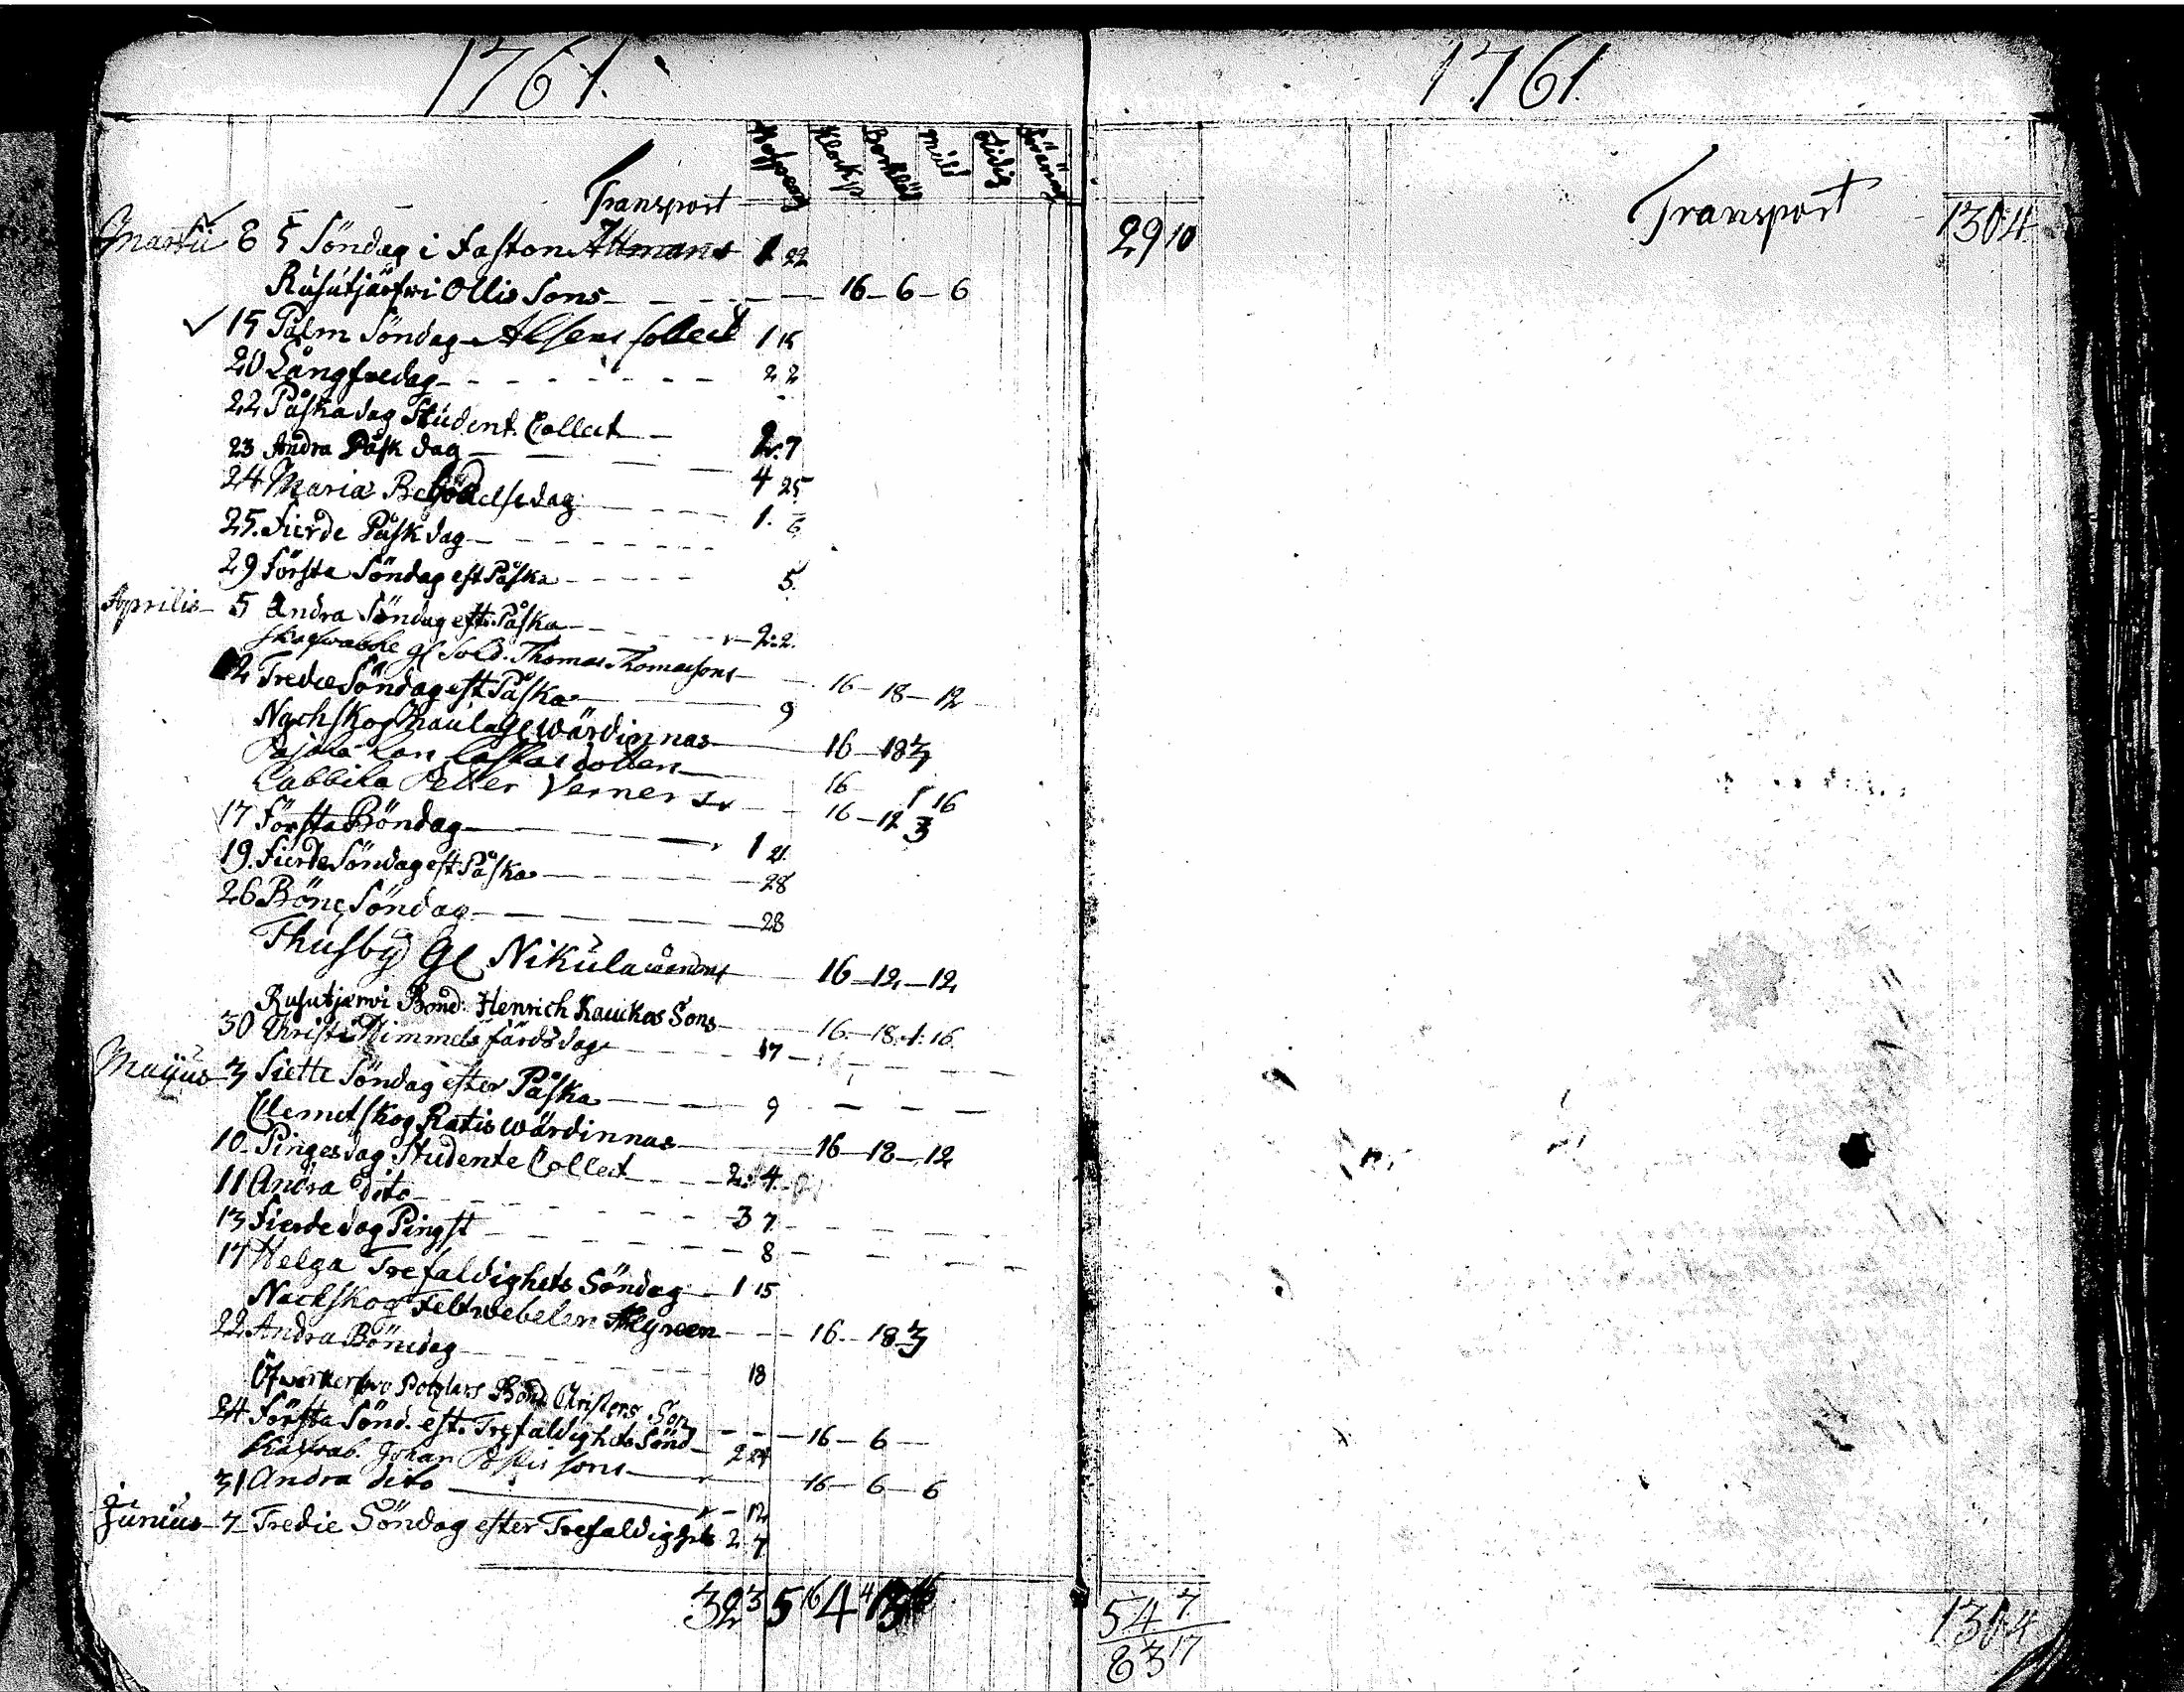 1761.
Håfpeng Klockp Barkläd Mull
Transport
Martii 8 5 Söndag i Faston 1 22
Rusutjärfwi Ollis Sons 16 - 6 - 6
15 Palm Söndag Alsens Collect 1 15
20 Långfredag 2 2
22 Påska dag Student. Collect 2. 7
23 Andra Påsk dag 4 25
24 Mariæ Bebådelsedag 1. 6
25. Fierde Påsk dag
29 Första Söndag eft Påska 5.
Aprilis 5 Andra Söndag eft. Påska 2: 2.
gl Sold. Thomas Thomassons 16 - 18 - 12
12 Tredie Söndag eft Påska 9
Nackskog Paula gl wärdinnas 16 - 18 3
16 - 1 16
Labbika Petter Verners 16 - 12 3
17 Första Böndag 1 21.
19. Fierde Söndag eft Påska 28
26 Böne Söndag 28
Thusby gl Nikula 16 - 12 - 12
Rusutjerwi Bond. Henrich Kaukas Sons 16. - 18. 1: 16.
30 Christi Himmelsfärds dag 17
Majus 3 Siette Söndag efter Påska 9
Clemetskog Ratis wärdinnas 16 - 18 - 12
10 Pingesdag Studente Collect 2: 4.
11 Andra dito 3 7
13 Fierde dag Pingst 8
17 Helga Trefaldighets Söndag 1 15
Nackskog Feltwebelen 16. - 18 3
22 Andra Böndag 18
Bond Christers Son 16 - 6
24 Första Sönd. eft. Trefaldighets Sönd 2 24
Johan sons 16 - 6 - 6
31 Andra dito 12
Junius 7 Tredie Söndag efter Trefaldighets 2 7
32 3 5 16 4 4
1761.
Transport
29 10
1304
54 7
83 17
1304